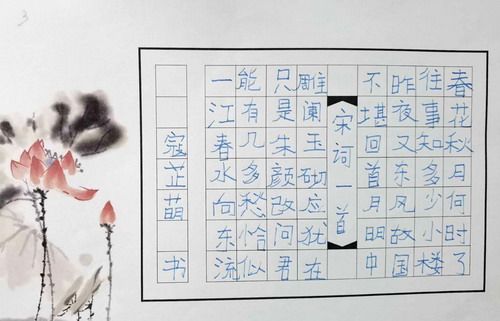 春花秋月何时了
往事知多少小楼
昨夜又东风故国
不堪回首月明中
宋词一首
雕阑玉砌应犹在
只是朱颜改问君
能有几多愁恰似
一江春水向东流
寇芷萌 书
3